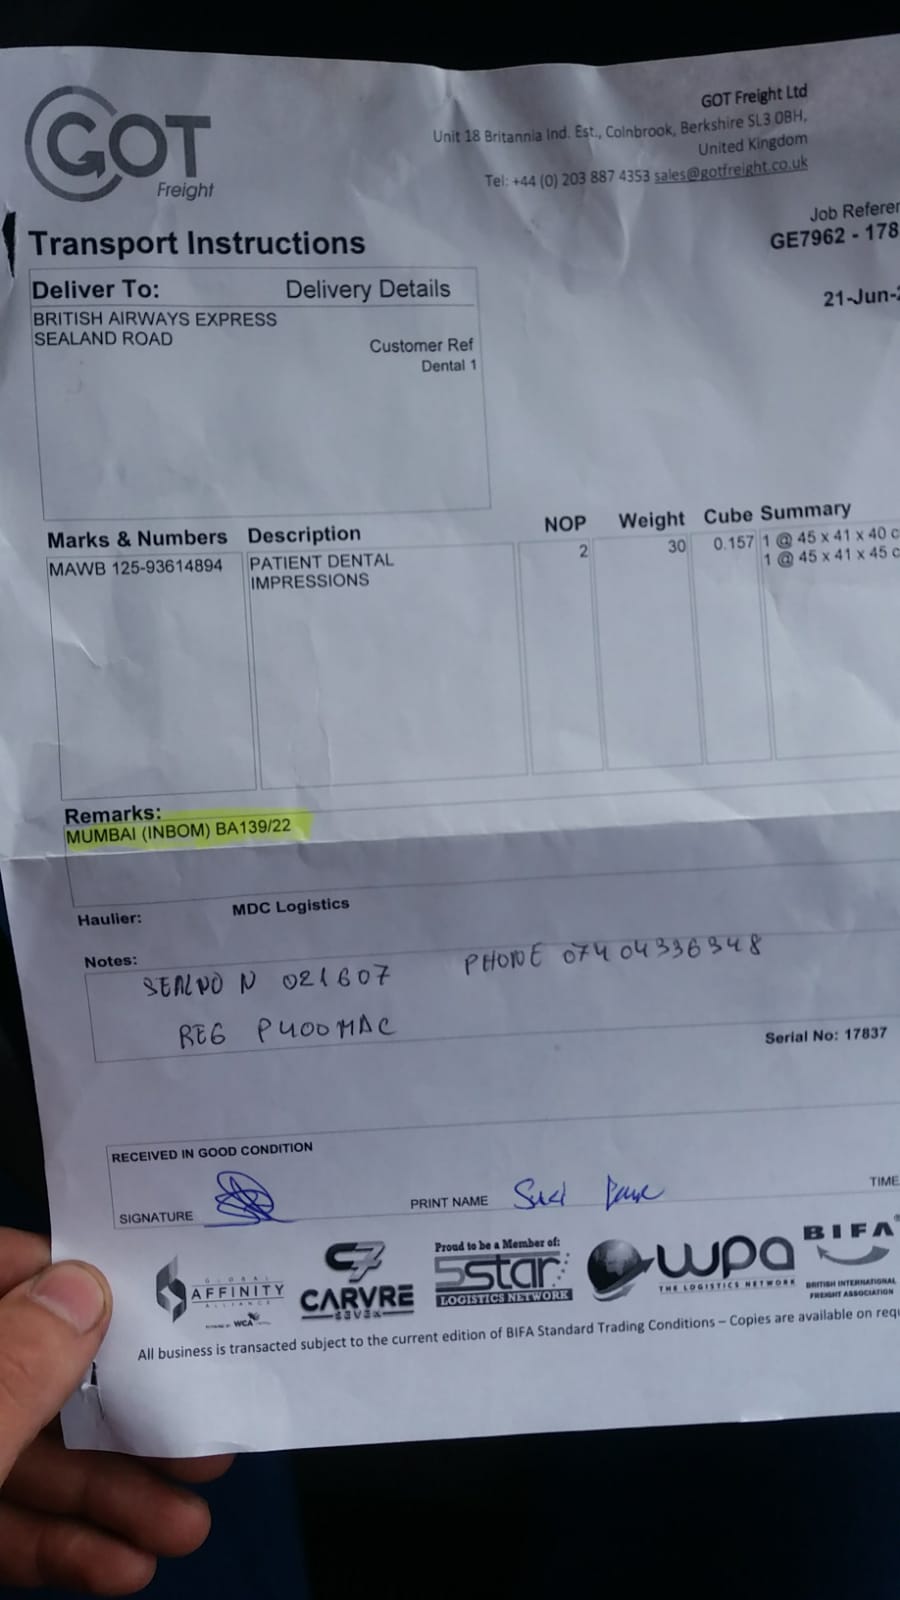 GOT
Freight
GOT Freight Ltd
Unit 18 Britannia Ind. Est., Colnbrook, Berkshire SL3 0BH,
United Kingdom
Tel: +44 (0) 203 887 4353 sales@gotfreight.co.uk
Job Referen
GE7962 - 178
Transport Instructions
21-Jun-2
Deliver To: Delivery Details
BRITISH AIRWAYS EXPRESS
SEALAND ROAD
Customer Ref
Dental 1
Marks & Numbers Description NOP Weight Cube Summary
MAWB 125-93614894 PATIENT DENTAL 2 30 0.157 1 @ 45 x 41 x 40 c
IMPRESSIONS 1 @ 45 x 41 x 45 c
Remarks:
MUMBAI (INBOM) BA139/22
Haulier: MDC Logistics
Notes:
SEALNO N 021607 PHONE 07404336348
REG P400MAC
Serial No: 17837
RECEIVED IN GOOD CONDITION
SIGNATURE PRINT NAME TIME
GLOBAL
AFFINITY
ALLIANCE
WCA
CARVRE
SEVEN
Proud to be a Member of:
5star
LOGISTICS NETWORK
wpa
THE LOGISTICS NETWORK
BIFA®
BRITISH INTERNATIONAL
FREIGHT ASSOCIATION
All business is transacted subject to the current edition of BIFA Standard Trading Conditions – Copies are available on requ